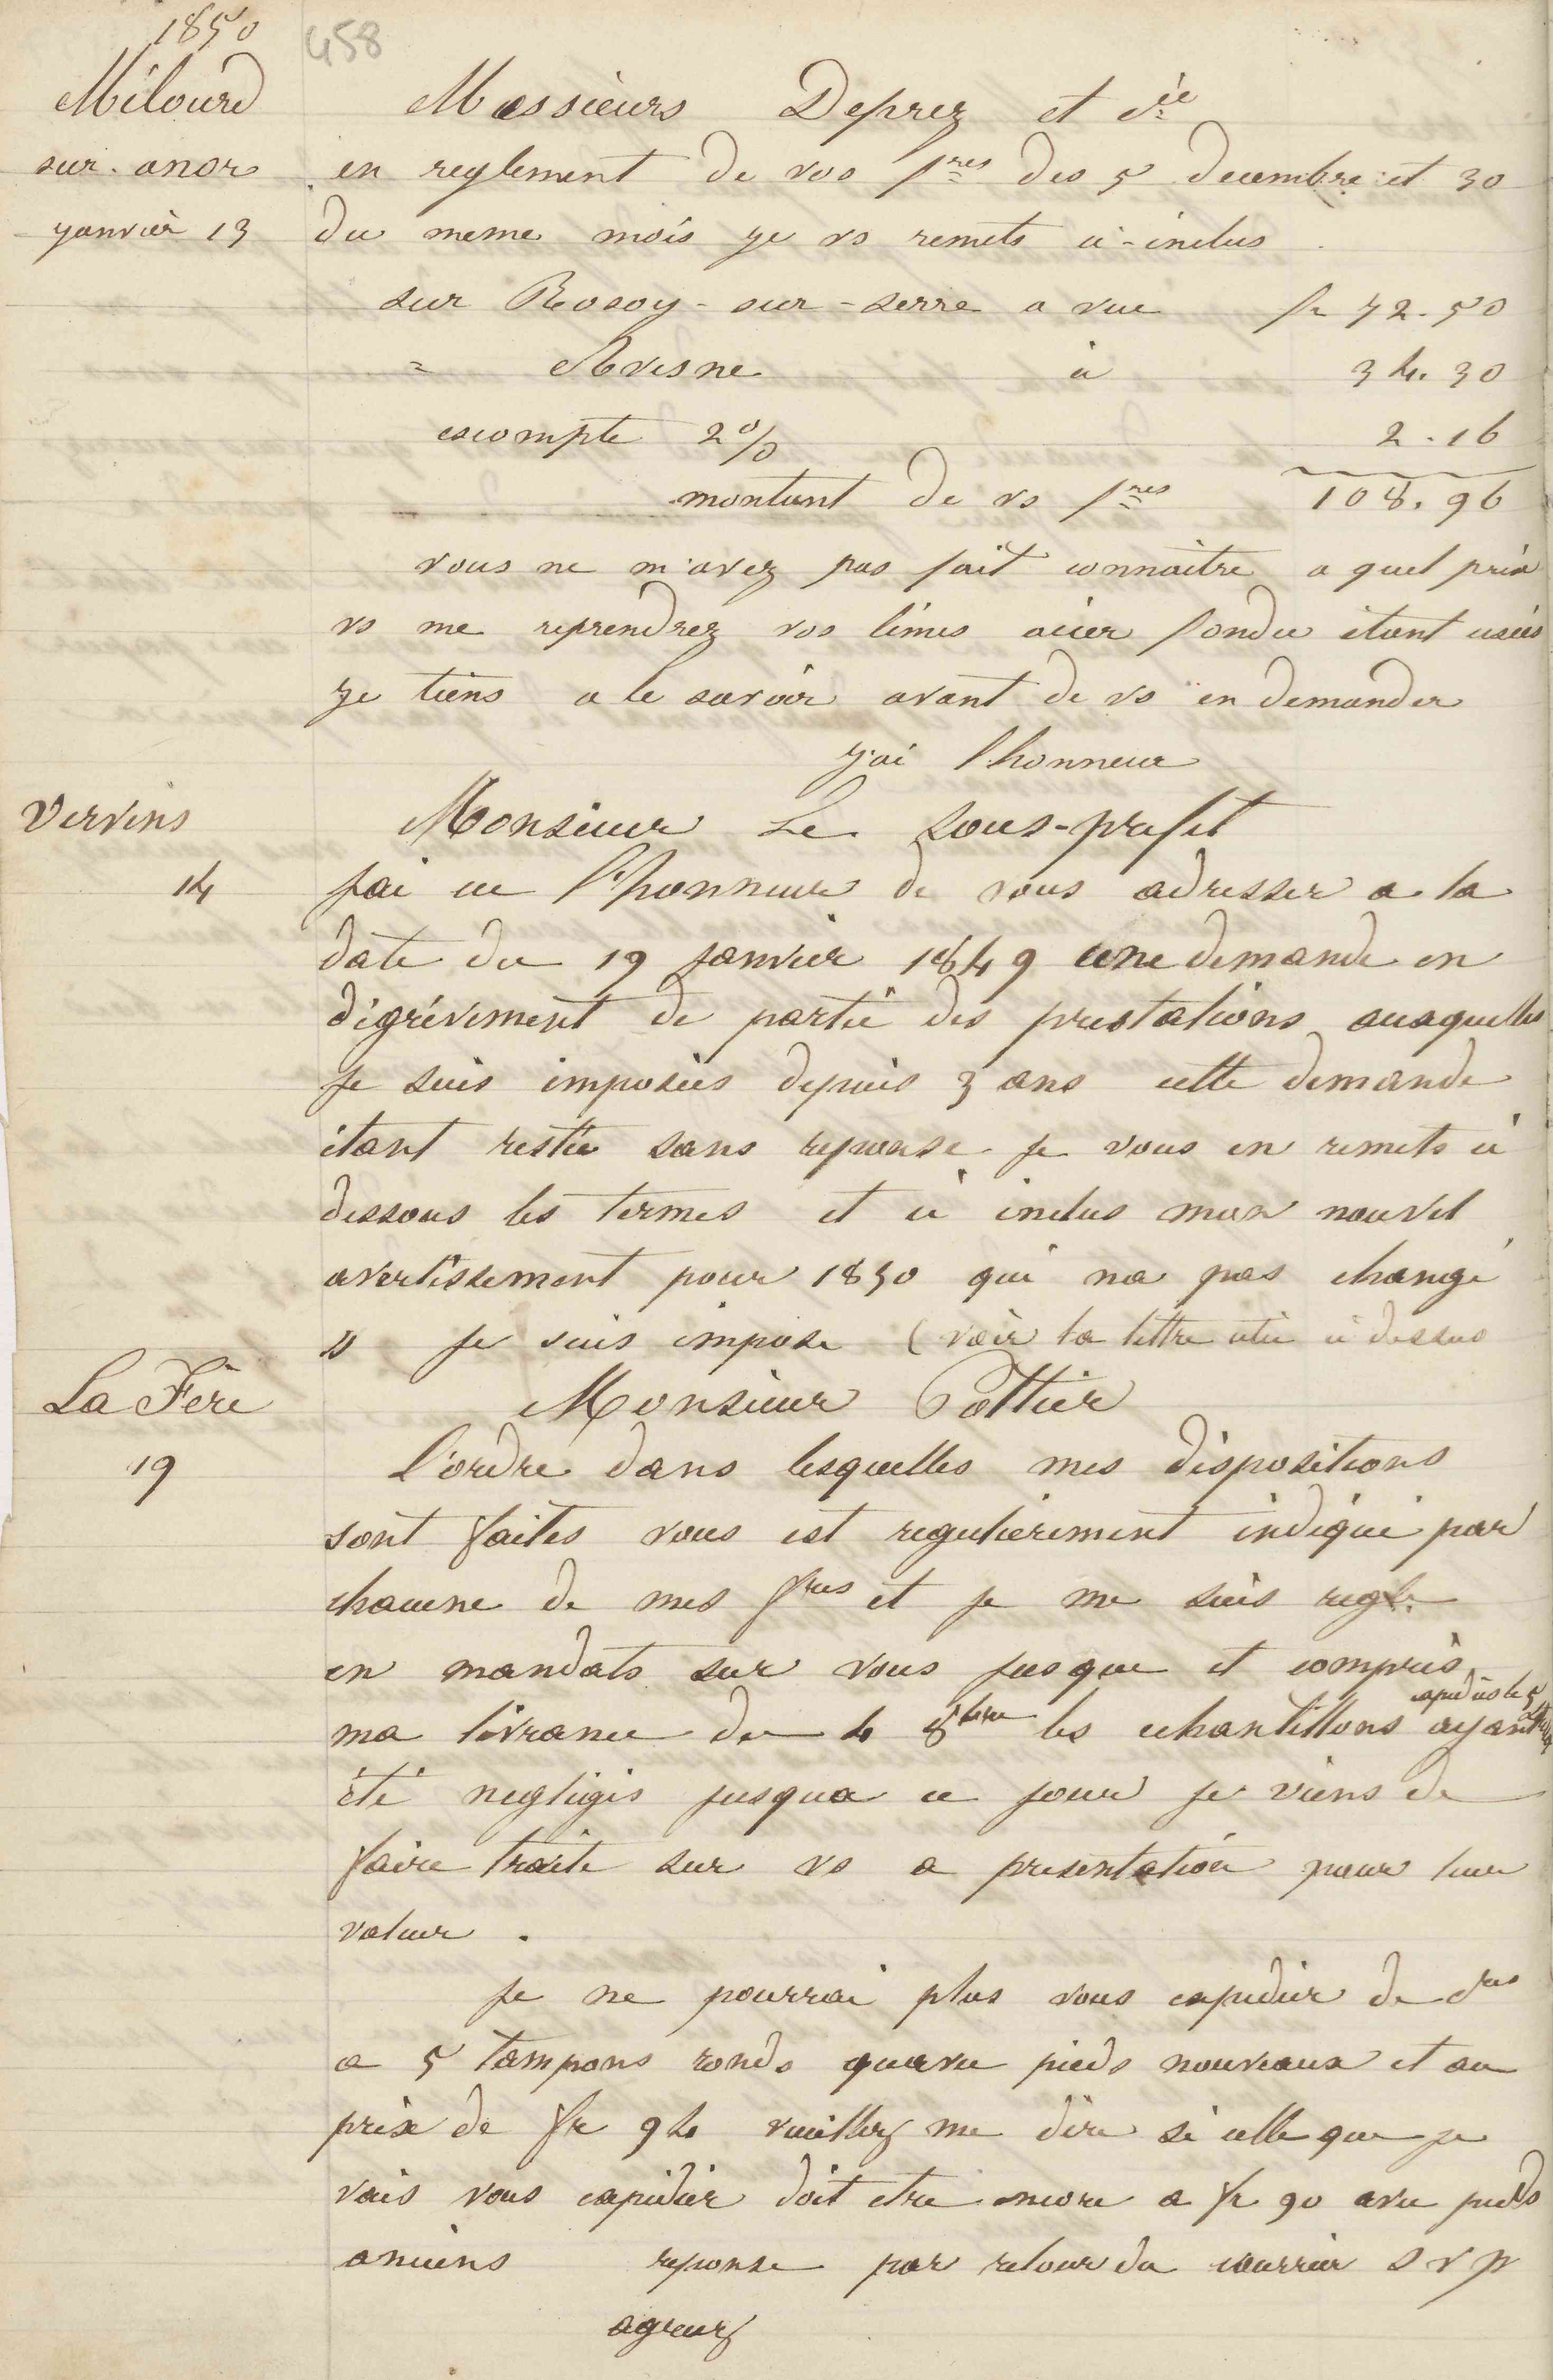 1850
458
Milourd
Messieurs Deprez et Cie
sur. anor
en reglement de vos fres des 5 decembre et 30
janvier 13
du meme mois je vs remets ci-inclus
sur Rosoy-sur-serre a vue fr 72.50
= Avesne à 34.30
escompte 2% 2.16
montant de vs fres 108.96
vous ne m'avez pas fait connaitre a quel prix
vs me reprendrez vos limes acier fondu étant usées
je tiens a le savoir avant de vs en demander
j'ai l'honneur
Vervins
Monsieur Le Sous-prefet
14
jai eu l'honneur de vous adresser a la
date du 19 janvier 1849 une demande en
dégrévement de partie des prestations auxquelles
je suis imposées depuis 3 ans cette demande
étant restée sans reponse je vous en remets ci
dessous les termes et ci inclus mon nouvel
avertissement pour 1850 qui na pas changé
" je suis impose (voir la lettre citée ci dessus
La Fère
Monsieur Pottier
19
l'ordre dans lesquelles mes dispositions
sont faites vous est regulièrement indiqué par
chacune de mes fres et je me suis regle
en mandats sur vous jusque et compris
ma livrance du 4 8bre les echantillons expediés le 5 ayant
été negligés jusqua ce jour je viens de
faire traite sur vs a presentation pour leur
valeur .
je ne pourrai plus vous expedier de cres
a 5 tampons ronds quavec pieds nouveaux et au
prix de fr 94 veuillez me dire si celle que je
vais vous expédier doit etre encore a fr 90 avec pieds
anciens reponse par retour du courrier s v p
agreez